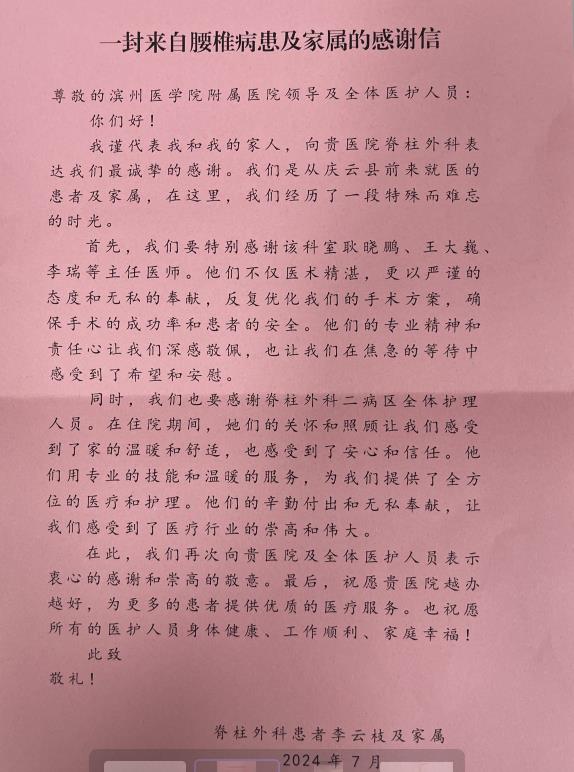 一封来自腰椎病患及家属的感谢信
尊敬的滨州医学院附属医院领导及全体医护人员：
你们好！
我谨代表我和我的家人，向贵医院脊柱外科表
达我们最诚挚的感谢。我们是从庆云县前来就医的
患者及家属，在这里，我们经历了一段特殊而难忘
的时光。
首先，我们要特别感谢该科室耿晓鹏、王大巍、
李瑞等主任医师。他们不仅医术精湛，更以严谨的
态度和无私的奉献，反复优化我们的手术方案，确
保手术的成功率和患者的安全。他们的专业精神和
责任心让我们深感敬佩，也让我们在焦急的等待中
感受到了希望和安慰。
同时，我们也要感谢脊柱外科二病区全体护理
人员。在住院期间，她们的关怀和照顾让我们感受
到了家的温暖和舒适，也感受到了安心和信任。他
们用专业的技能和温暖的服务，为我们提供了全方
位的医疗和护理。他们的辛勤付出和无私奉献，让
我们感受到了医疗行业的崇高和伟大。
在此，我们再次向贵医院及全体医护人员表示
衷心的感谢和崇高的敬意。最后，祝愿贵医院越办
越好，为更多的患者提供优质的医疗服务。也祝愿
所有的医护人员身体健康、工作顺利、家庭幸福！
此致
敬礼！
脊柱外科患者李云枝及家属
2024 年 7 月